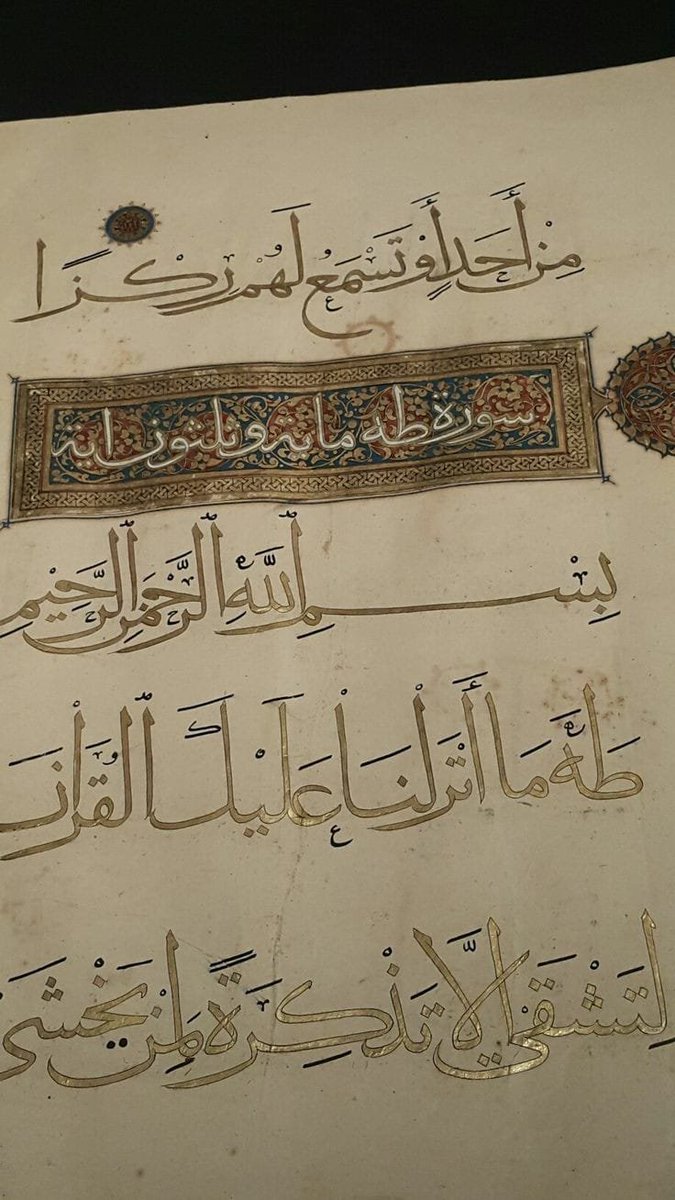 مِنْ أَحَدٍ أَوْ تَسْمَعُ لَهُمْ رِكْزًا
سورة طه ماية وثلثون اية
بِسْمِ اللَّهِ الرَّحْمَنِ الرَّحِيمِ
طَهَ مَا أَنْزَلْنَا عَلَيْكَ الْقُرْآنَ
لِتَشْقَى إِلَّا تَذْكِرَةً لِمَنْ يَخْشَى